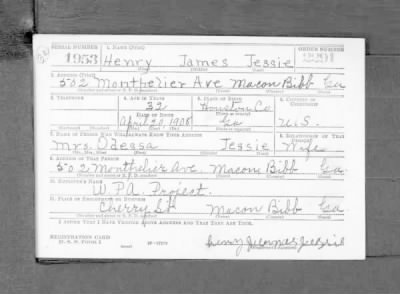 SERIAL NUMBER 1. NAME (Print) ORDER NUMBER
1953 Henry James Jessie 2291
(First) (Middle) (Last)
2. ADDRESS (Print)
502 Monthelier Ave Macon Bibb Ga
3. TELEPHONE 4. AGE IN YEARS 5. PLACE OF BIRTH 6. COUNTRY OF CITIZENSHIP
32 Houston Co
DATE OF BIRTH
April 20 1908 Ga U.S.
(Mo.) (Day) (Yr.)
7. NAME OF PERSON WHO WILL ALWAYS KNOW YOUR ADDRESS 8. RELATIONSHIP OF THAT PERSON
Mrs. Odessa Jessie Wife
9. ADDRESS OF THAT PERSON
502 Monthelier Ave. Macon Bibb Ga
10. EMPLOYER'S NAME
W.P.A. Project.
11. PLACE OF EMPLOYMENT OR BUSINESS
Cherry St Macon Bibb Ga
I AFFIRM THAT I HAVE VERIFIED ABOVE ANSWERS AND THAT THEY ARE TRUE.
REGISTRATION CARD
D. S. S. Form 1
Henry James Jessie